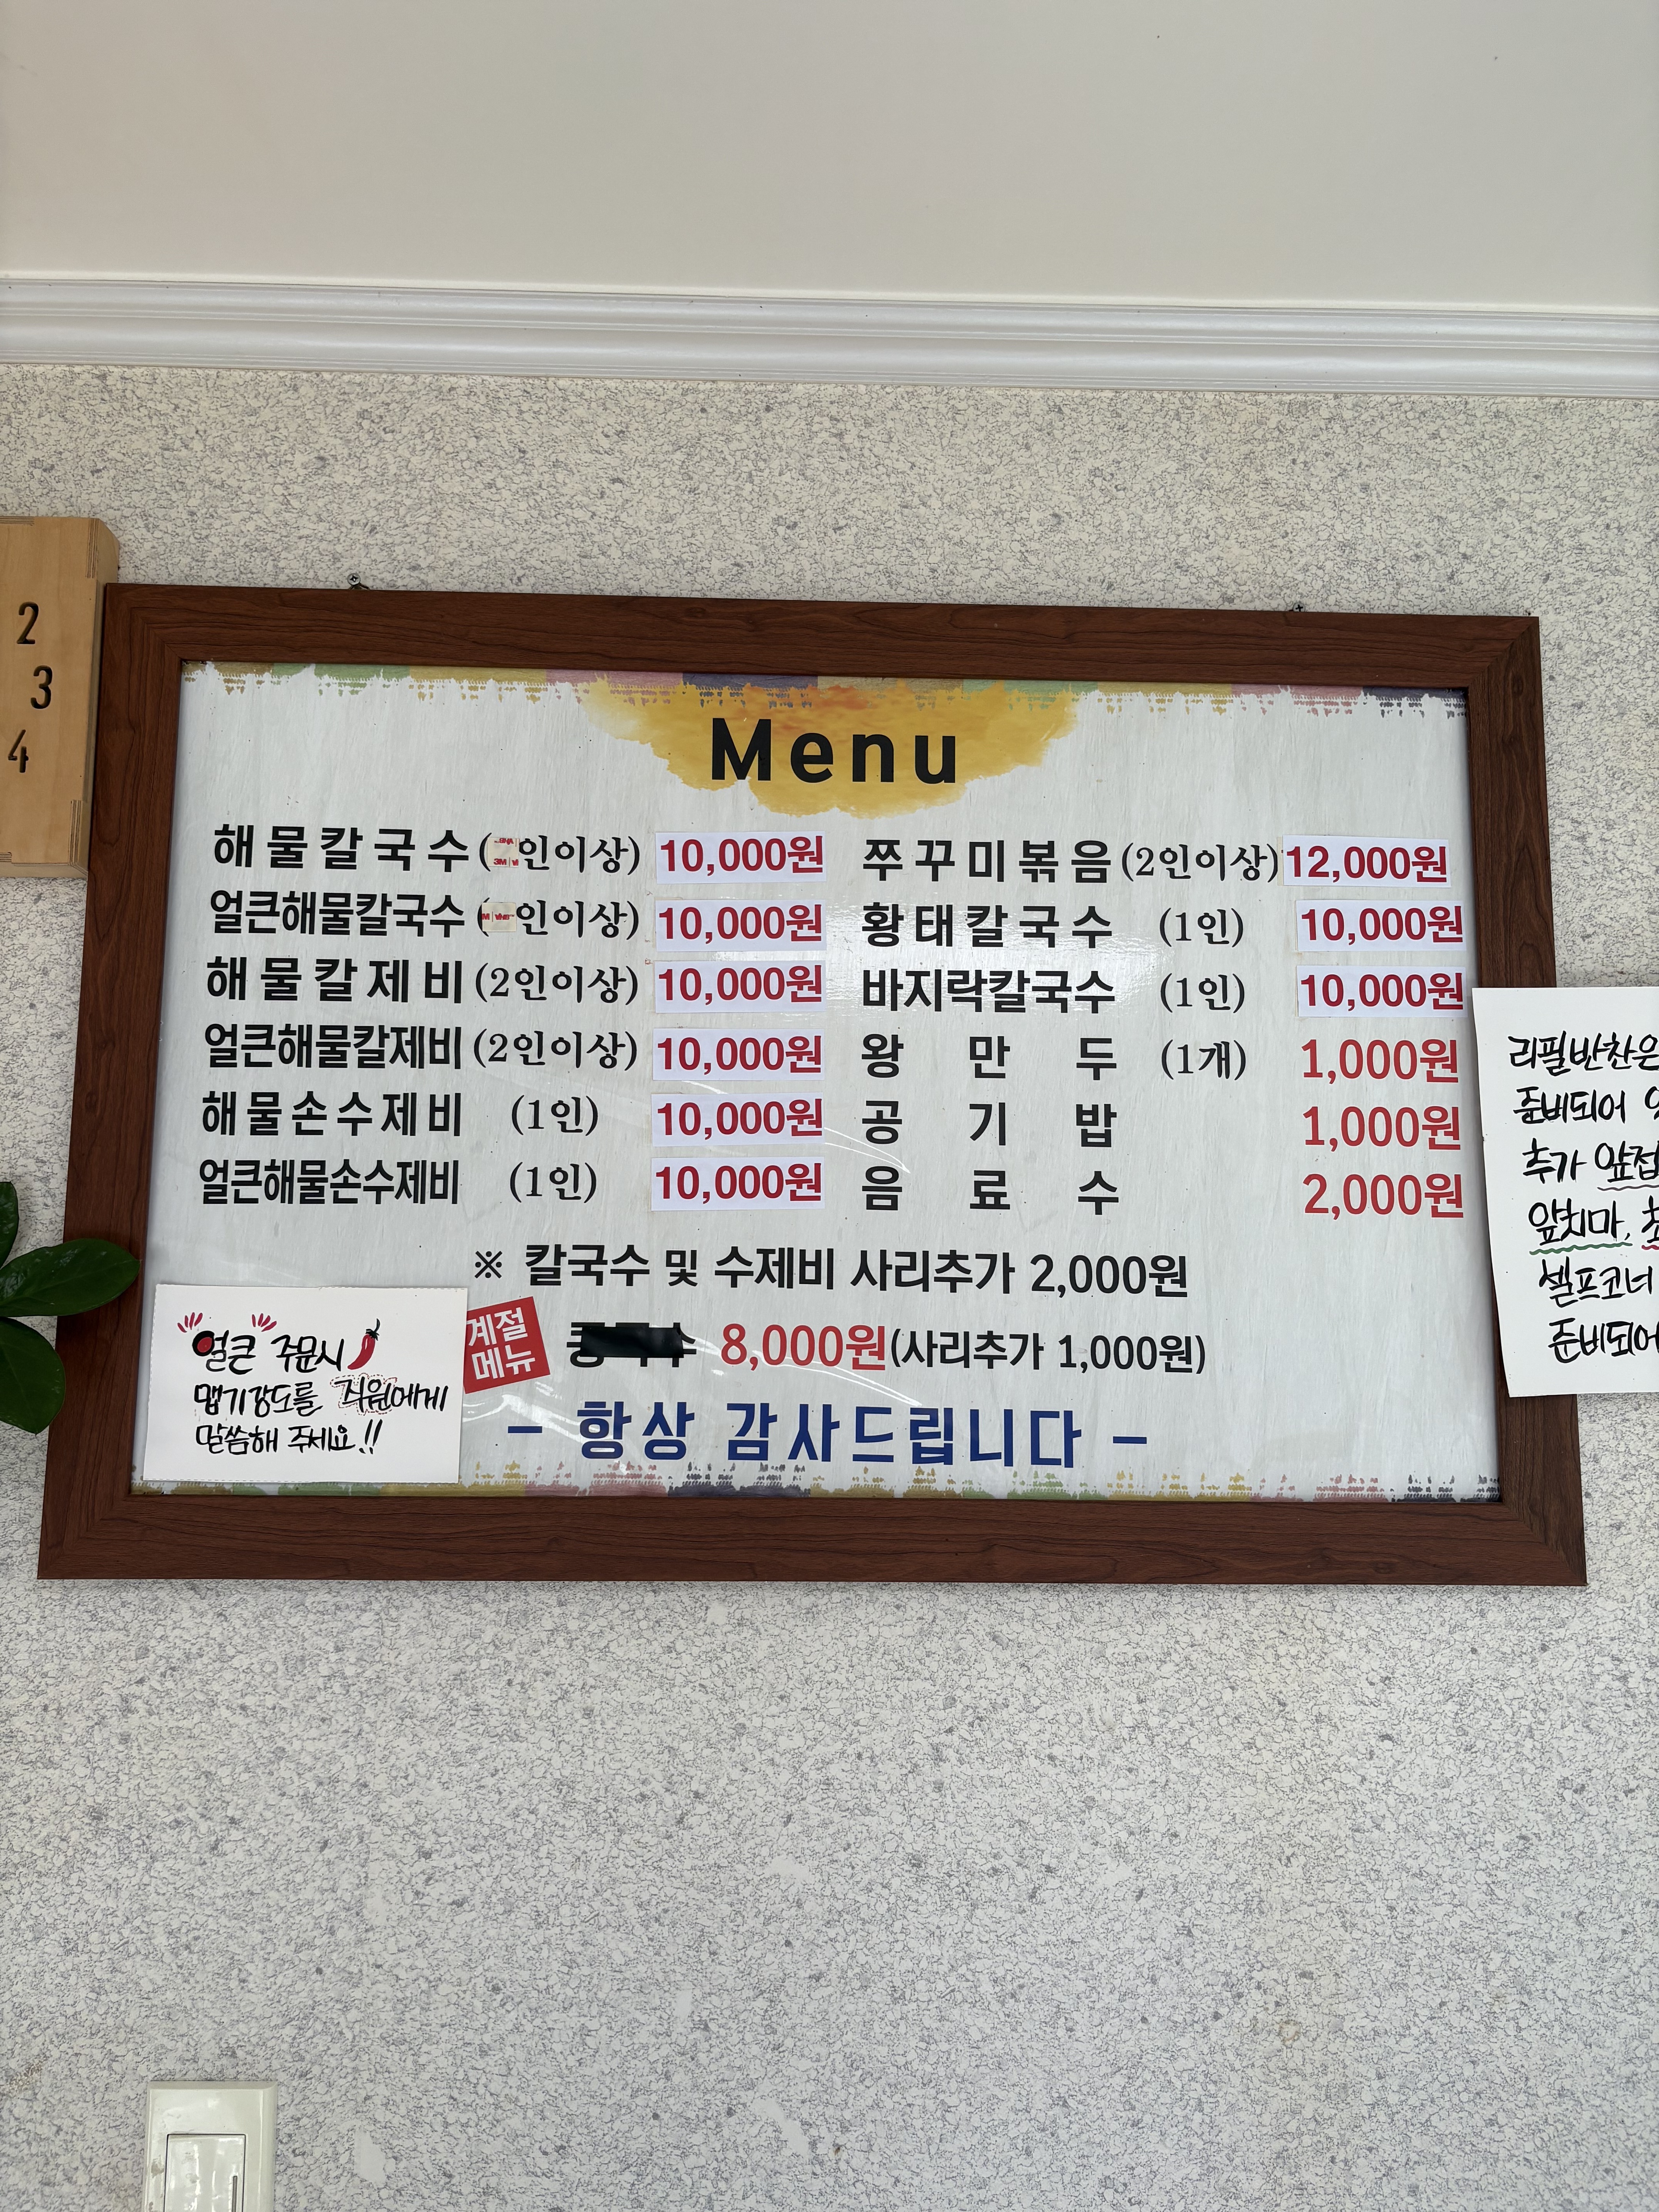 2
3
4
Menu
해물칼국수 (인이상) 10,000원
얼큰해물칼국수 (인이상) 10,000원
해물칼제비 (2인이상) 10,000원
얼큰해물칼제비 (2인이상) 10,000원
해물손수제비 (1인) 10,000원
얼큰해물손수제비 (1인) 10,000원
쭈꾸미볶음 (2인이상) 12,000원
황태칼국수 (1인) 10,000원
바지락칼국수 (1인) 10,000원
왕만두 (1개) 1,000원
공기밥 1,000원
음료수 2,000원
※ 칼국수 및 수제비 사리추가 2,000원
계절
메뉴
8,000원(사리추가 1,000원)
- 항상 감사드립니다 -
얼큰 주문시
맵기강도를 직원에게
말씀해 주세요!!
리필반찬은
준비되어
추가 앞접
앞치마,
셀프코너
준비되어